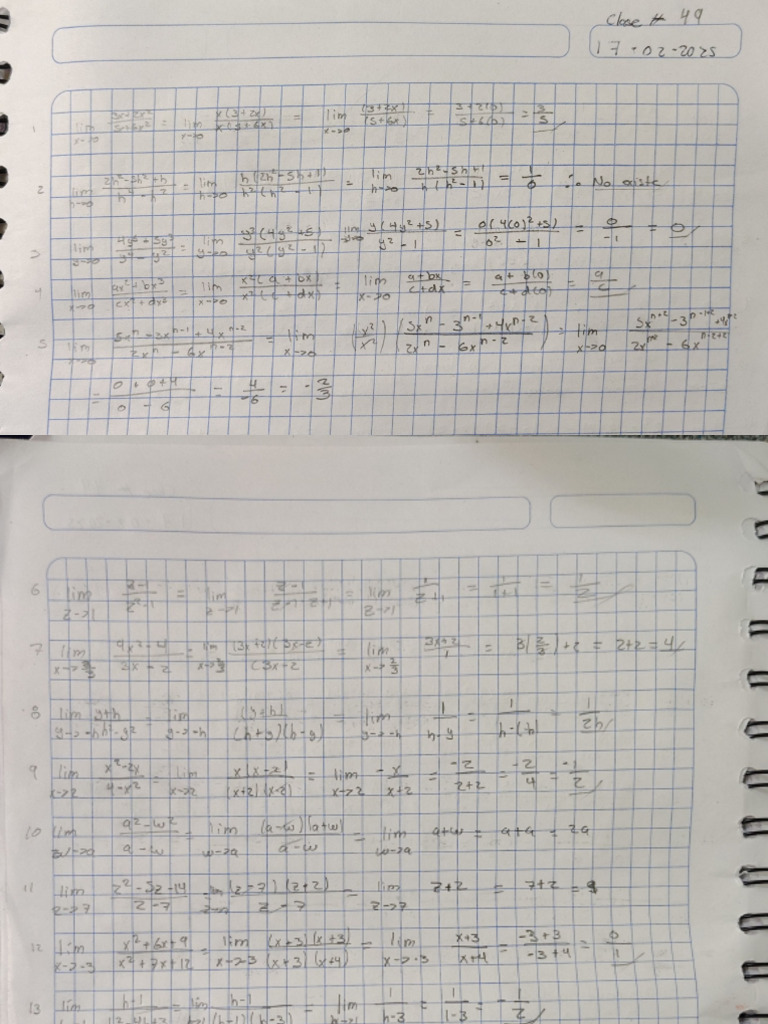 Clase # 49
17-02-2025
1 lim x→0 (3x+2x²)/(5x+6x²) = lim x→0 x(3+2x)/x(5+6x) = lim x→0 (3+2x)/(5+6x) = 3+2(0)/5+6(0) = 3/5
2 lim h→0 (2h³-5h²+h)/(h⁴-h²) = lim h→0 h(2h²-5h+1)/h²(h²-1) = lim h→0 (2h²-5h+1)/h(h²-1) = 1/0 ∴ No existe
3 lim y→0 /(y⁴-y²) = lim y→0 y³(4y²+5)/y²(y²-1) lim y→0 y(4y²+5)/(y²-1) = 0(4(0)²+5)/(0²-1) = 0/-1 = 0
4 lim x→0 (ax²+bx³)/(cx²+dx³) = lim x→0 x²(a+bx)/x²(c+dx) = lim x→0 (a+bx)/(c+dx) = a+b(0)/c+d(0) = a/c
5 lim x→0 (5xⁿ-3xⁿ⁻¹+4xⁿ⁻²)/(2xⁿ-6xⁿ⁻²) = lim x→0 (x²/x²) ((5xⁿ-3ⁿ⁻¹+4xⁿ⁻²)/(2xⁿ-6xⁿ⁻²)) = lim x→0
= (0+0+4)/(0-6) = 4/-6 = -2/3
6 lim z→1 (z-1)/(z²-1) = lim z→1 = lim z→1 1/(z+1) = 1/(1+1) = 1/2
7 lim x→2/3 (9x²-4)/(3x-2) = lim x→2/3 (3x+2)(3x-2)/(3x-2 = lim x→2/3 (3x+2)/1 = 3(2/3)+2 = 2+2=4
8 lim y→-h (y+h)/(h²-y²) = lim y→-h (y+h)/(h+y)(h-y) = lim y→-h 1/(h-y) = 1/(h-(-h)) = 1/2h
9 lim x→2 (x²-2x)/(4-x²) = lim x→2 x(x-2)/(x+2)(x-2) = lim x→2 -x/(x+2) = -2/(2+2) = -2/4 = -1/2
10 lim w→a (a²-w²)/(a-w) = lim w→a (a-w)(a+w)/(a-w) = lim w→a a+w = a+a = 2a
11 lim z→7 (z²-5z-14)/(z-7) = lim (z-7)(z+2)/(z-7) = lim z→7 z+2 = 7+2 = 9
12 lim x→-3 (x²+6x+9)/(x²+7x+12) = lim x→-3 (x+3)(x+3)/(x+3)(x+4) = lim x→-3 (x+3)/(x+4) = (-3+3)/(-3+4) = 0/1
13 lim = lim (h-1)/(h-1)(h-3) = lim h→1 1/(h-3) = 1/(1-3) = -1/2